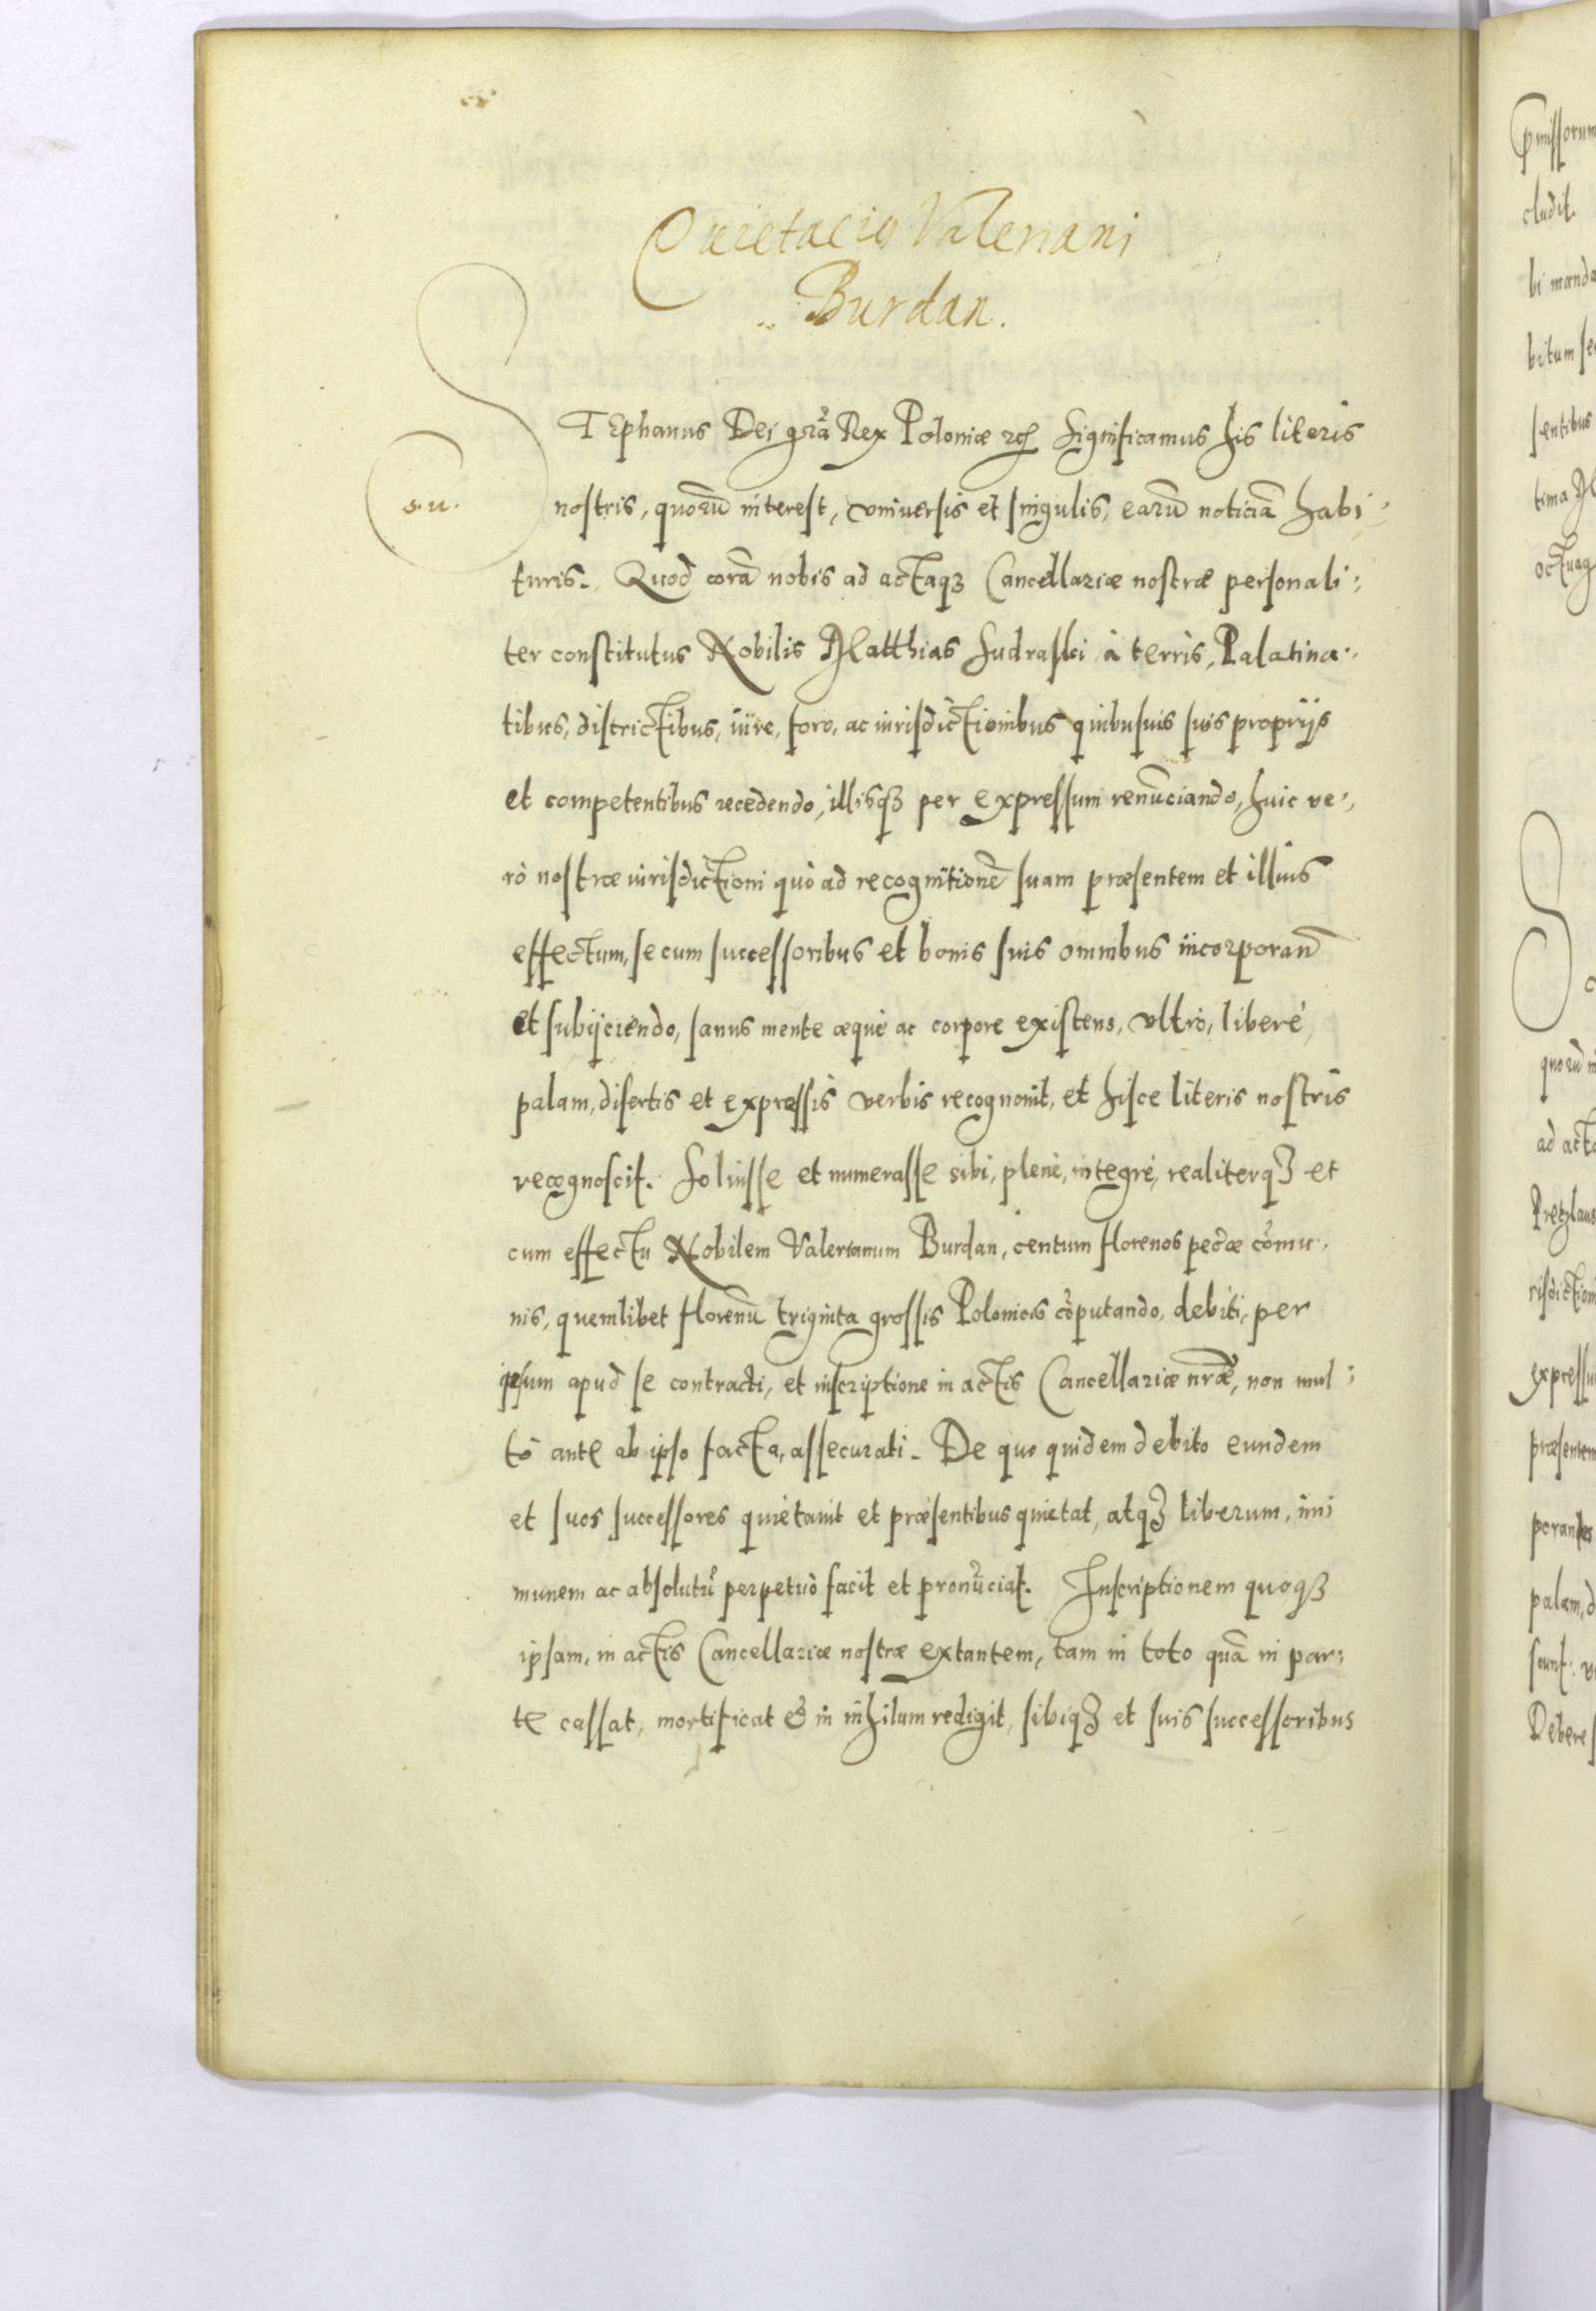 Quietacio Valeriani
Burdan.
STEphanus Dei gr̃a Rex Poloniæ ꝛcꝭ Significamus his literis
nostris, quorũ interest, vniuersis et singulis, earũ noticiã habi:
turis. Quod corã nobis ad actaqꝫ Cancellariæ nostræ personali:
ter constitutus Nobilis Matthias Sudraski à terris, Palatina:
tibus, districtibus, iure, foro, ac iurisdictionibus quibusuis suis proprijs
et competentibus recedendo, illisqꝫ per expressum renũciando, huic ve:,
rò nostræ iurisdictioni quò ad recognitionẽ suam præsentem et illius
effectum, se cum successoribus et bonis suis omnibus incorporan̄
et subijciendo, sanus mente æquè ac corpore existens, vltrò, liberè,
palam, disertis et expressis verbis recognouit, et hisce literis nostris
recognoscit. Soluisse et numerasse sibi, plenè, integrè, realiterqꝫ et
cum effectu Nobilem Valerianum Burdan, centum florenos pec̃æ com̃u:
nis, quemlibet florenũ triginta grossis Polonicis cõputando, debiti, per
ipsum apud se contracti, et inscriptione in actis Cancellariæ nr̃æ, non mul:
tò ante ab ipso facta, assecurati. De quo quidem debito eundem
et suos successores quietauit et præsentibus quietat, atqꝫ liberum, im:
munem ac absolutũ perpetuò facit et pronũciat. Inscriptionem quoqꝫ
ipsam, in actis Cancellariæ nostræ extantem, tam in toto quã in par:
te cassat, mortificat & in nihilum redigit, sibiqꝫ et suis successoribus